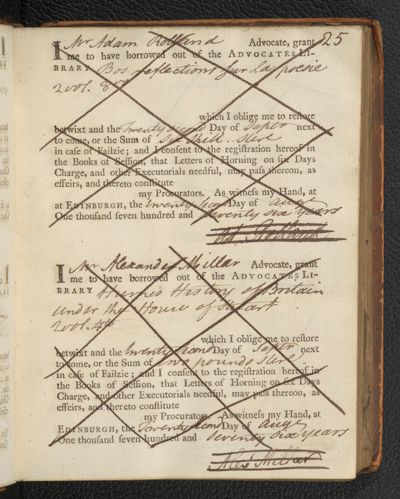 25
I Mr Adam Rolland Advocate, grant
me to have borrowed out of the ADVOCATES LI-
BRARY Bos reflections sur la poesie
2 vol. 8
which I oblige me to restore
betwixt and the twenty second Day of Septr next
to come, or the Sum of Ster
in case of Failzie; and I consent to the registration hereof in
the Books of Session, that Letters of Horning on six Days
Charge, and other Executorials needful, may pass thereon, as
effeirs, and thereto constitute
my Procurators. As witness my Hand, at
at EDINBURGH, the twenty second Day of augt
One thousand seven hundred and seventy six years
Ad. Rolland
I Mr Alexander Millar Advocate, grant
me to have borrowed out of the ADVOCATES LI-
BRARY Humes History of Britain
under the House of Stuart
2 vol. 4to
which I oblige me to restore
betwixt and the twenty second Day of Septr next
to come, or the Sum of two pounds Ster.
in case of Failzie; and I consent to the registration hereof in
the Books of Session, that Letters of Horning on six Days
Charge, and other Executorials needful, may pass thereon, as
effeirs, and thereto constitute
my Procurators. As witness my Hand, at
EDINBURGH, the Twenty second Day of augt
One thousand seven hundred and seventy six years
Alex Millar